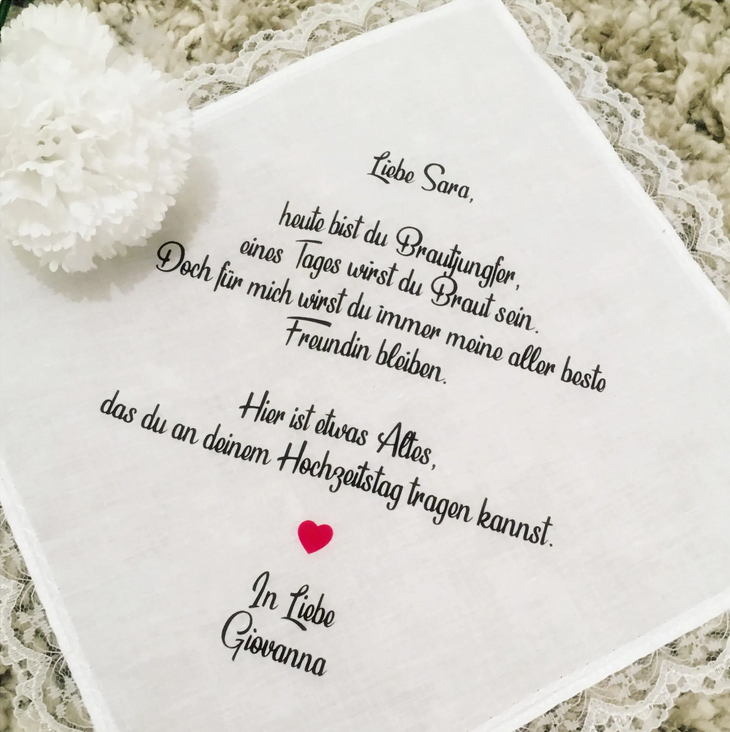 Liebe Sara,
heute bist du Brautjungfer,
eines Tages wirst du Braut sein.
Doch für mich wirst du immer meine aller beste
Freundin bleiben.
Hier ist etwas Altes,
das du an deinem Hochzeitstag tragen kannst.
In Liebe
Giovanna